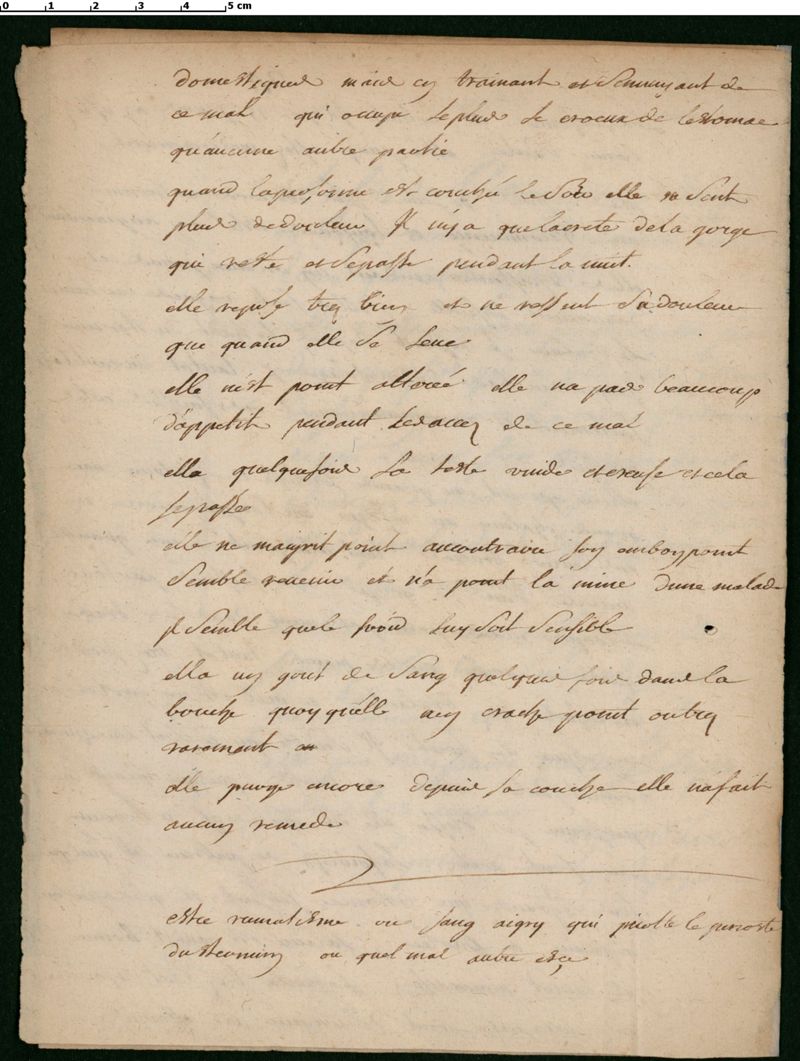 0 1 2 3 4 5 cm
domestiques mais en trainant et sennuyant de
ce mal qui occupe le plus le creux de lestomac
qu'aucune autre partie
quand la personne est couché le soir elle ne sent
plus de douleur Il n'y a que lacreté de la gorge
qui reste et se passe pendant la nuit.
elle repose tres bien et ne ressent sa douleur
que quand elle se leve
elle n'est point alterée elle na pas beaucoup
d'appetit pendant les acces de ce mal
ella quelquefois la teste vuide et creuse et cela
se passe
elle ne maigrit point aucontraire son embonpoint
semble revenir et n'a point la mine dune malade
Il semble que le froid luy soit sensible
ella un gout de sang quelque fois dans la
bouche quoy qu'elle nen crache point ou tres
rarement
elle purge encore depuis sa couche elle na fait
aucun remede
estce rumatisme ou sang aigry qui picotte le perioste
du sternum ou quel mal autre est ce